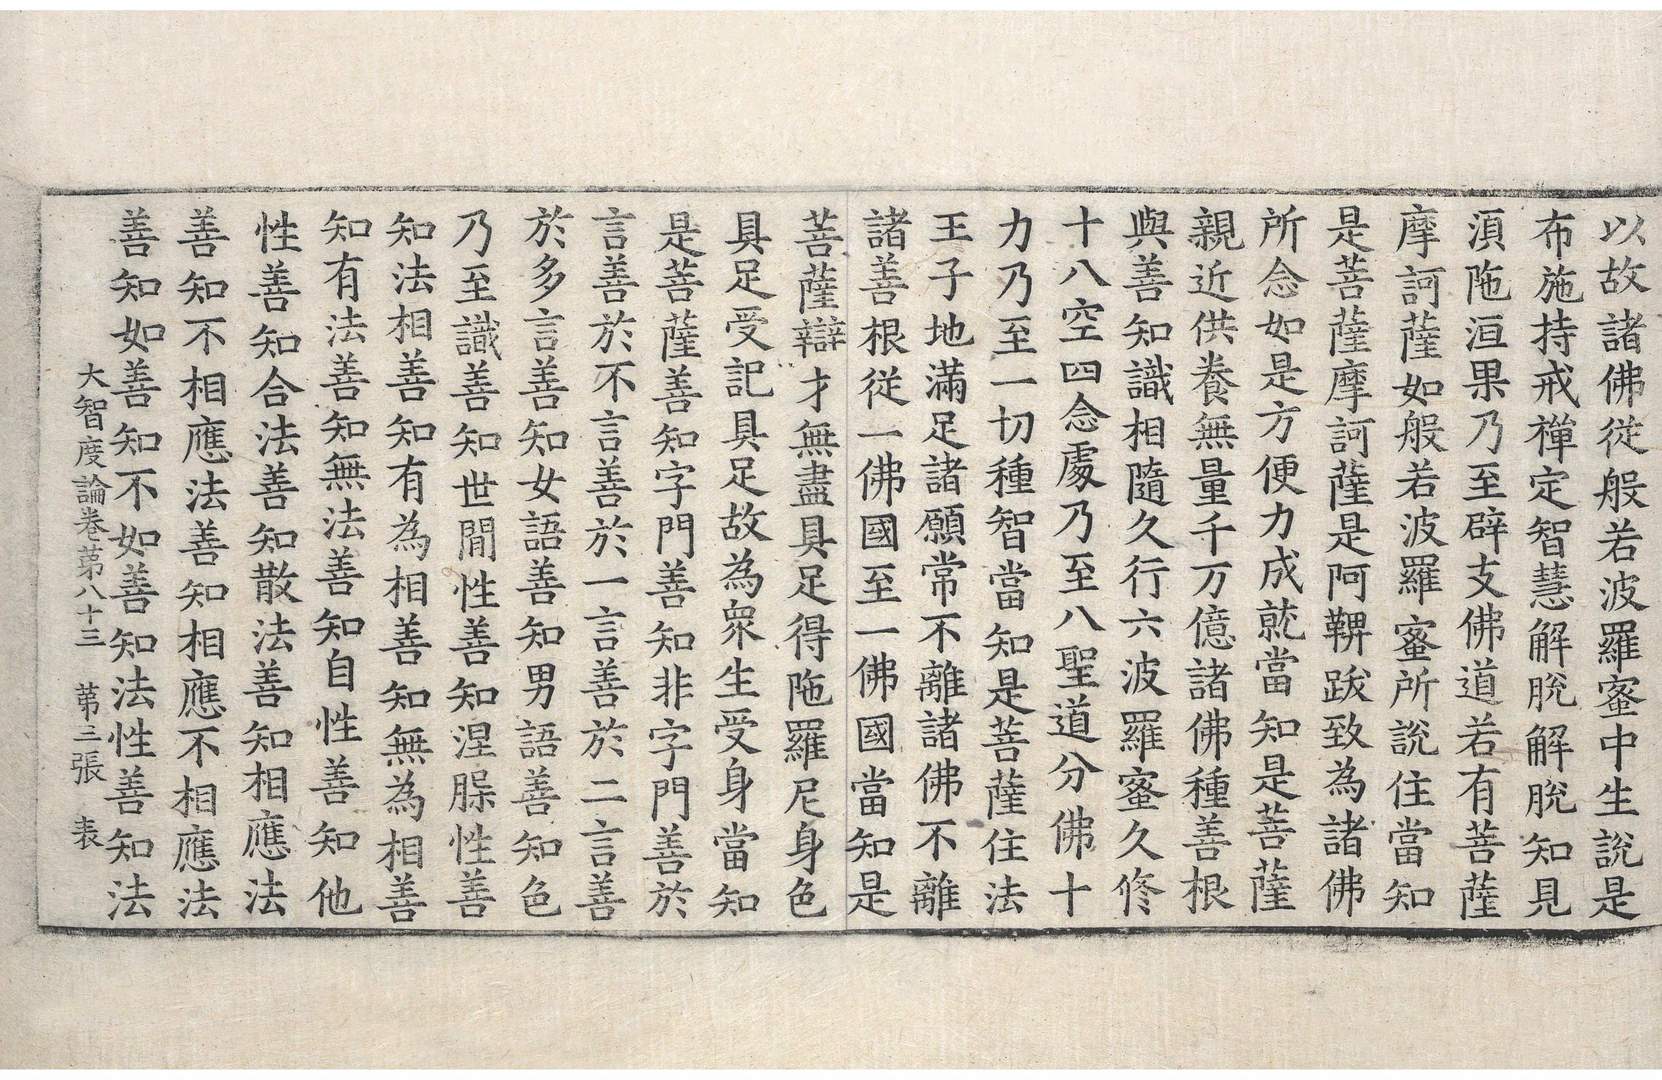 以故諸佛從般若波羅蜜中生說是
布施持戒禪定智慧解脫解脫知見
湏陁洹果乃至辟支佛道若有菩薩
摩訶薩如般若波羅蜜所說住當知
是菩薩摩訶薩是阿鞞跋致為諸佛
所念如是方便力成就當知是菩薩
親近供養無量千万億諸佛種善根
與善知識相隨久行六波羅蜜久修
十八空四念處乃至八聖道分佛十
力乃至一切種智當知是菩薩住法
王子地滿足諸願常不離諸佛不離
諸善根從一佛國至一佛國當知是
菩薩辯才無盡具足得陁羅尼身色
具足受記具足故為衆生受身當知
是菩薩善知字門善知非字門善於
言善於不言善於一言善於二言善
於多言善知女語善知男語善知色
乃至識善知世閒性善知涅槃性善
知法相善知有為相善知無為相善
知有法善知無法善知自性善知他
性善知合法善知散法善知相應法
善知不相應法善知相應不相應法
善知如善知不如善知法性善知法
大智度論卷苐八十三 苐三張 表